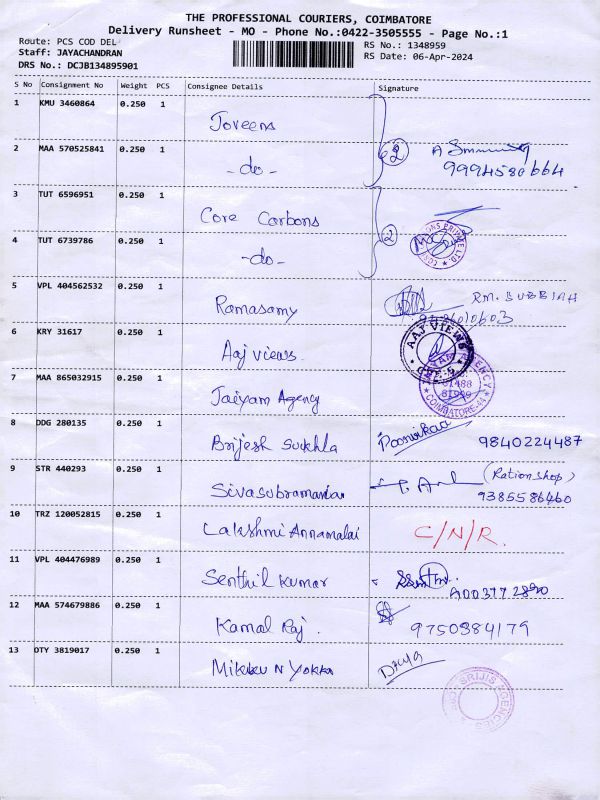 THE PROFESSIONAL COURIERS, COIMBATORE
Delivery Runsheet - MO - Phone No.:0422-3505555 - Page No.:1
Route: PCS COD DEL
RS No.: 1348959
Staff: JAYACHANDRAN
RS Date: 06-Apr-2024
DRS No.: DCJB134895901
S No Consignment No Weight PCS Consignee Details Signature
1 KMU 3460864 0.250 1 Joveens
2 MAA 570525841 0.250 1 -do- 2 9994580664
3 TUT 6596951 0.250 1 Core Carbons 2
4 TUT 6739786 0.250 1 -do-
5 VPL 404562532 0.250 1 Ramasamy RM. SUBBIAH
6 KRY 31617 0.250 1 Aaj views. AAJ VIEWS CBE-9
7 MAA 865032915 0.250 1 Jaiyam Agency COIMBATORE-44
8 DDG 280135 0.250 1 Brijesh Sukhla 9840224487
9 STR 440293 0.250 1 Sivasubramanian (Rationshop) 9385586460
10 TRZ 120052815 0.250 1 Lakshmi Annamalai C/N/R.
11 VPL 404476989 0.250 1 Senthil kumar
12 MAA 574679886 0.250 1 Kamal Raj. 9750884179
13 OTY 3819017 0.250 1 Divya
SRIJIS AGENCIES